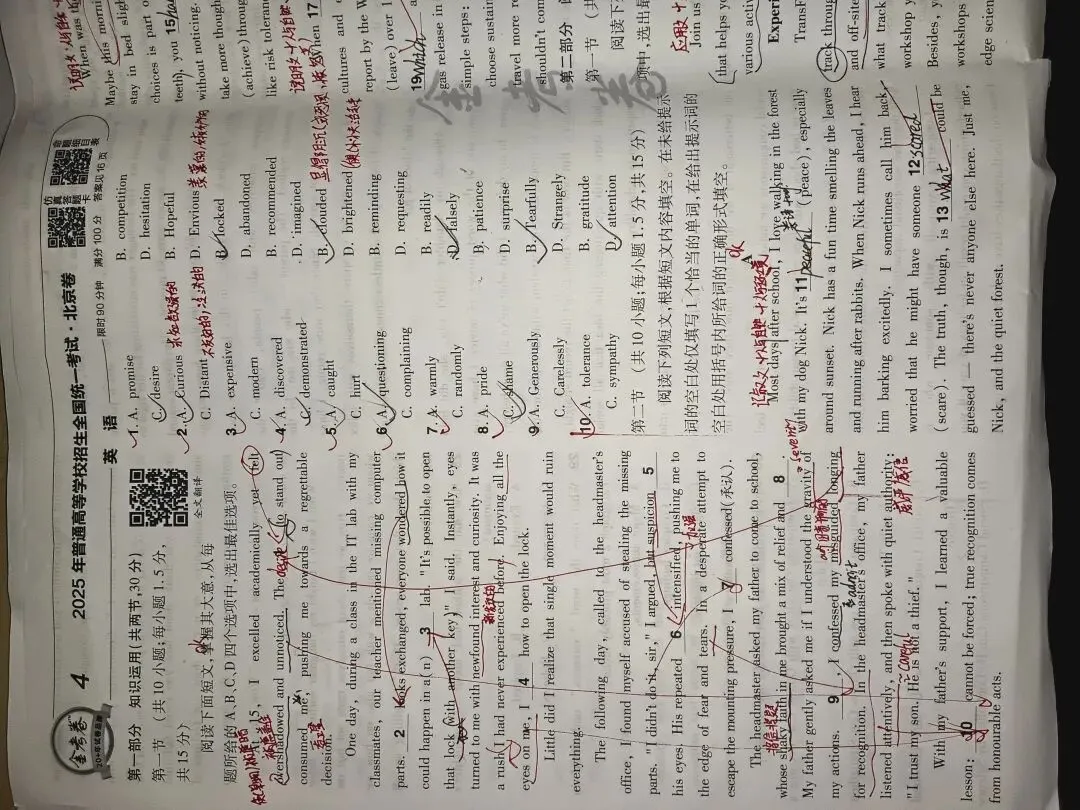 金考卷
4 2025年普通高等学校招生全国统一考试·北京卷
英 语
限时90分钟 满分100分 答案见16页
全文翻译
第一部分 知识运用(共两节,30分)
第一节 (共10小题;每小题1.5分,
共15分)
阅读下面短文,掌握其大意,从每
题所给的A、B、C、D四个选项中,选出最佳选项。
At 15, I excelled academically yet felt
overshadowed and unnoticed. The desire to stand out
consumed me, pushing me towards a regrettable
decision.
One day, during a class in the IT lab with my
classmates, our teacher mentioned missing computer
parts. 2 looks exchanged, everyone wondered how it
could happen in a(n) 3 lab. "It's possible to open
that lock with another key," I said. Instantly, eyes
turned to me with newfound interest and curiosity. It was
a rush I had never experienced before. Enjoying all the
eyes on me, I 4 how to open the lock.
Little did I realize that single moment would ruin
everything.
The following day, called to the headmaster's
office, I found myself accused of stealing the missing
parts. "I didn't do it, sir," I argued, but suspicion 5
his eyes. His repeated 6 intensified, pushing me to
the edge of fear and tears. In a desperate attempt to
escape the mounting pressure, I 7 confessed(承认).
The headmaster asked my father to come to school,
whose shaky faith in me brought a mix of relief and 8 .
My father gently asked me if I understood the gravity of
my actions. 9 , I confessed my misguided longing
for recognition. In the headmaster's office, my father
listened attentively, and then spoke with quiet authority:
"I trust my son. He is not a thief."
With my father's support, I learned a valuable
lesson: 10 cannot be forced; true recognition comes
from honourable acts.
1. A. promise B. competition
C. desire D. hesitation
2. A. Curious B. Hopeful
C. Distant D. Envious
3. A. expensive B. locked
C. modern D. abandoned
4. A. discovered B. recommended
C. demonstrated D. imagined
5. A. caught B. clouded
C. hurt D. brightened
6. A. questioning B. reminding
C. complaining D. requesting
7. A. warmly B. readily
C. randomly D. falsely
8. A. pride B. patience
C. shame D. surprise
9. A. Generously B. Tearfully
C. Carelessly D. Strangely
10. A. tolerance B. gratitude
C. sympathy D. attention
第二节 (共10小题;每小题1.5分,共15分)
阅读下列短文,根据短文内容填空。在未给提示
词的空白处仅填写1个恰当的单词,在给出提示词的
空白处用括号内所给词的正确形式填空。
A
Most days after school, I love walking in the forest
with my dog Nick. It's 11 peaceful (peace), especially
around sunset. Nick has a fun time smelling the leaves
and running after rabbits. When Nick runs ahead, I hear
him barking excitedly. I sometimes call him back,
worried that he might have someone 12 scared
(scare). The truth, though, is 13 What could be
guessed — there's never anyone else here. Just me,
Nick, and the quiet forest.
When was the
Maybe this morni
stay in bed slight
choices is part of
teeth, you 15
without noticing.
take more though
(achieve) through
like risk toleranc
When 17
cultures and
report by the W
(leave) over 1
19 What
gas release in
simple steps:
choose sustain
travel more re
shouldn't com
第二部分
第一节 (共
阅读下
项中,选出最
Join us
helps yo
various activ
Experi
TransF
track throug
and off-site
what track
workshop y
Besides, y
workshops
edge scien